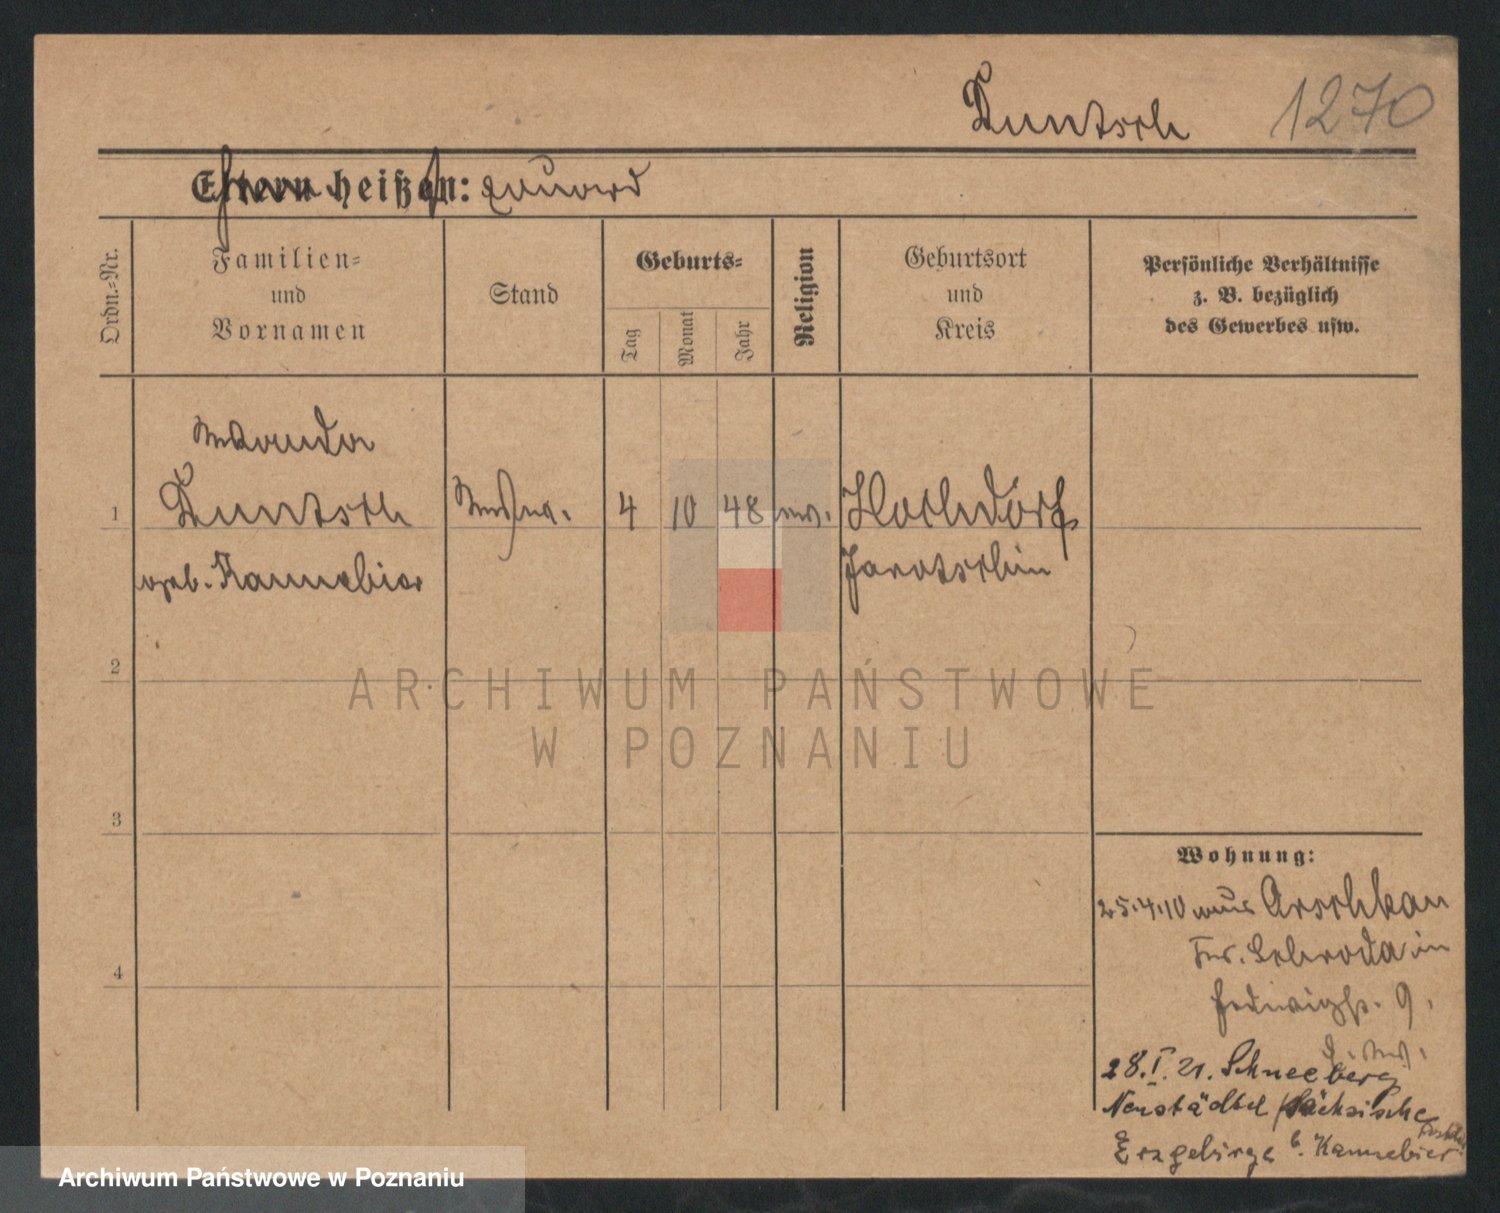 Kuntsch 1270
Eltern heißen: Eduard
Ordn.-Nr.
Familien-
und
Vornamen
Stand
Geburts-
Tag
Monat
Jahr
Religion
Geburtsort
und
Kreis
Persönliche Verhältnisse
z. B. bezüglich
des Gewerbes usw.
1
Kuntsch
geb. Kannebier
4 10 48 ev.
Hochdorf
Jarotschin
2
3
4
Wohnung:
25.4.10 aus Arschkau
Schroda in
Hedwigstr. 9.
28.I.21. Schneeberg
Neustädtel Sächsische
Erzgebirge b. Kannebier
ARCHIWUM PAŃSTWOWE
W POZNANIU
Archiwum Państwowe w Poznaniu